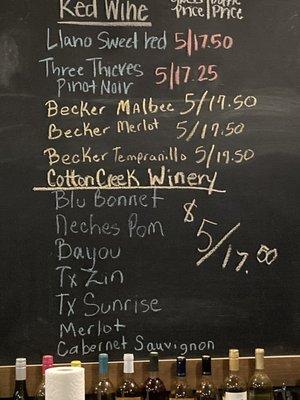 Red Wine
price/Price
Llano Sweet red 5/17.50
Three Thieves
Pinot Noir 5/17.25
Becker Malbec 5/17.50
Becker Merlot 5/17.50
Becker Tempranillo 5/17.50
Cotton Creek Winery
Blu Bonnet
Neches Pom
Bayou
Tx Zin
Tx Sunrise
Merlot
Cabernet Sauvignon
$5/17.50